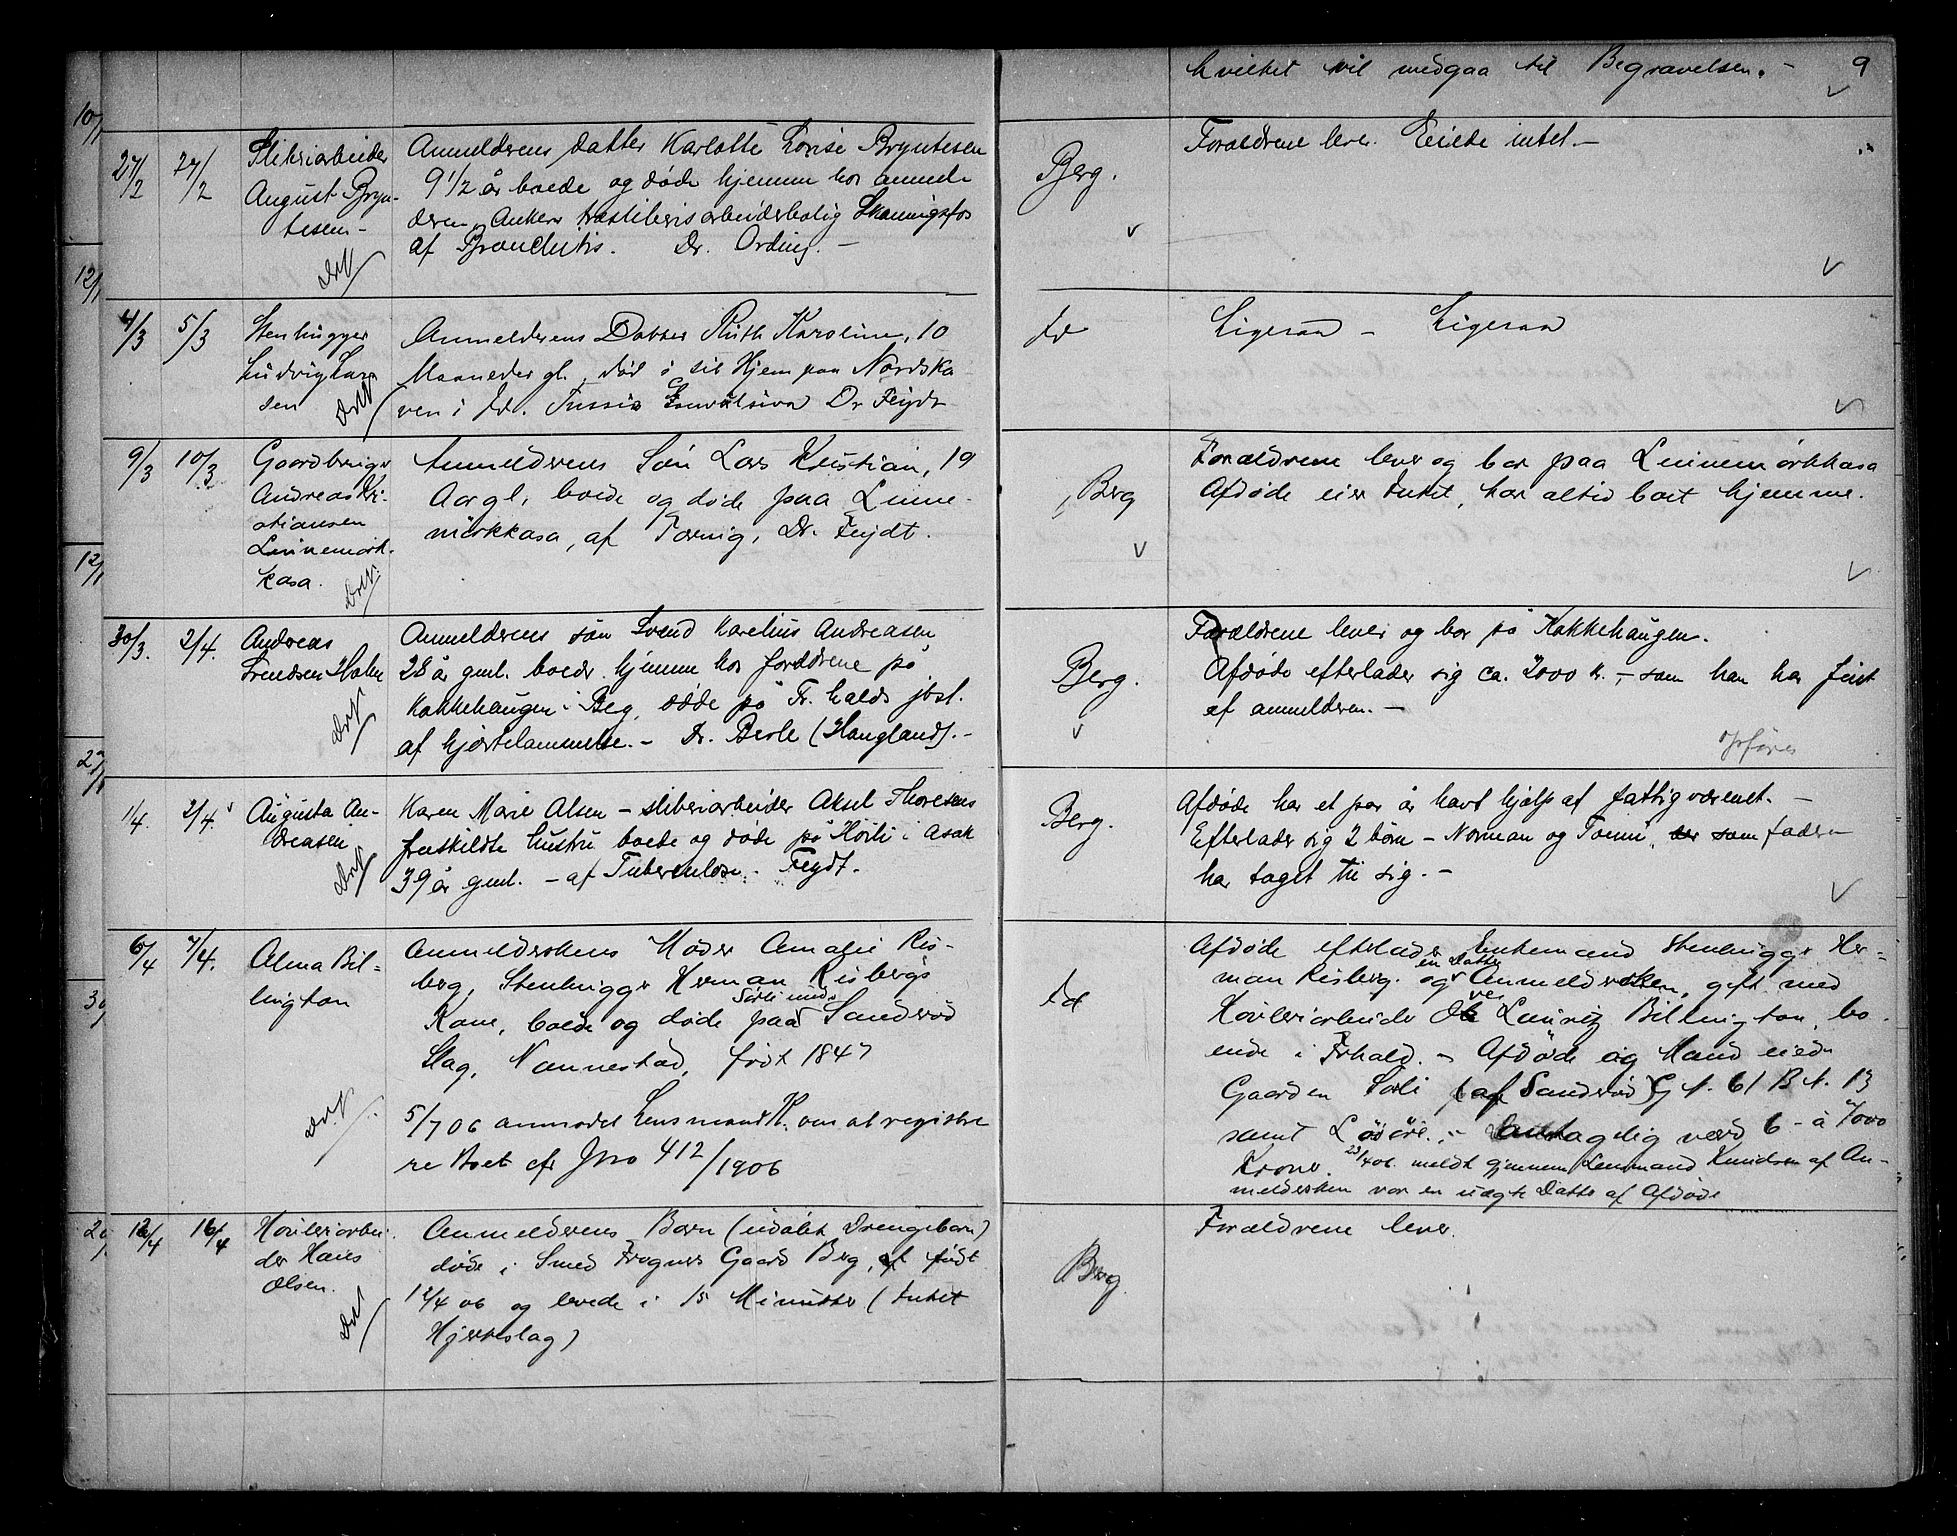 hvilket vil medgaa til Begravelsen. - 9
10/1
27/2 27/2
Sliberiarbeider
August Bryn-
tesen -
Drf
Anmelderens datter Karlotte Lovise Bryntesen
9 1/2 år boede og døde hjemme hos anmel-
deren, Ankers træsliberis arbeiderbolig Skonningsfos
af Bronchitis. Dr. Ording. -
Berg.
Forældrene lever. Eiede intet. -
12/1
4/3 5/3
Stenhugger
Ludvig Lar-
sen
Drf
Anmelderens Datter Ruth Karoline, 10
Maaneder gl. død i sit Hjem paa Nordska
ven i Id. Tussis Convulsiva Dr Feydt
Id
Ligesaa - Ligesaa
9/3 10/3
Gaardbruger
Andreas Kri-
stiansen
Linnemørk-
kasa.
Drf.
Anmelderens Søn Lars Kristian, 19
Aar gl. boede og døde paa Linne-
mørkkasa, af Tæring, Dr. Feydt.
Berg
Forældrene lever og bor paa Linnemørkkasa
Afdøde eier Intet, har altid boet hjemme.
12/1
30/3. 2/4.
Andreas
Svendsen Holm
Drf
Anmelderens søn Svend Karelius Andreasen
28 år gml. boede hjemme hos forældrene på
Kokkehaugen i Berg, døde på Fr.halds jbst.
af hjertelammelse. - Dr. Berle (Haugland). -
Berg.
Forældrene lever og bor på Kokkehaugen.
Afdøde efterlader sig ca. 2000 kr. - som han har
af anmelderen. -
Opføres
1/4. 2/4.
Augusta An-
dreasen
Drf
Karen Marie Olsen - sliberiarbeider Aksel Thoresens
fraskildte hustru boede og døde på Høili i Asak
39 år gml. - af Tuberculose. - Feydt.
Berg.
Afdøde har et par år havt hjælp af fattigvæsenet. -
Efterlader sig 2 børn - Norman og Tommi, som faderen
har taget til sig. -
6/4 7/4.
Alma Bil-
lington
Drf.
Anmelderskens Moder Amalie Ris-
berg, Stenhugger Herman Risbergs
Kone, boede og døde paa Sørli under Sandrød
Slag, Nannestad, født 1847
5/7 06 anmodet Lensmand K. om at registre
re Boet cfr Jno 412/1906
Id
Afdøde efterlader Enkemand Stenhugger Her-
man Risberg. og en Datter Anmeldersken, gift med
Høvleriarbeider Laurig Billington, bo
ende i Frhald. - Afdøde og Mand eiede
Gaarden Sørli (af Sandrød) G N. 61 B N. 13
samt Løsøre. - Antagelig værd 6 - à 7000
Kroner. 23/4 06. meldt gjennem Lensmand Knudsen at An-
meldersken var en uægte Datter af Afdøde
30/
12/4 16/4
Høvleriarbei-
der Hans
Olsen.
Drf
Anmelderens Barn (udøbt Drengebarn)
døde i Smed Frogners Gaard Berg, født
12/4 06 og levede i 15 Minutter (Intet
Hjerteslag)
Berg
Forældrene lever.